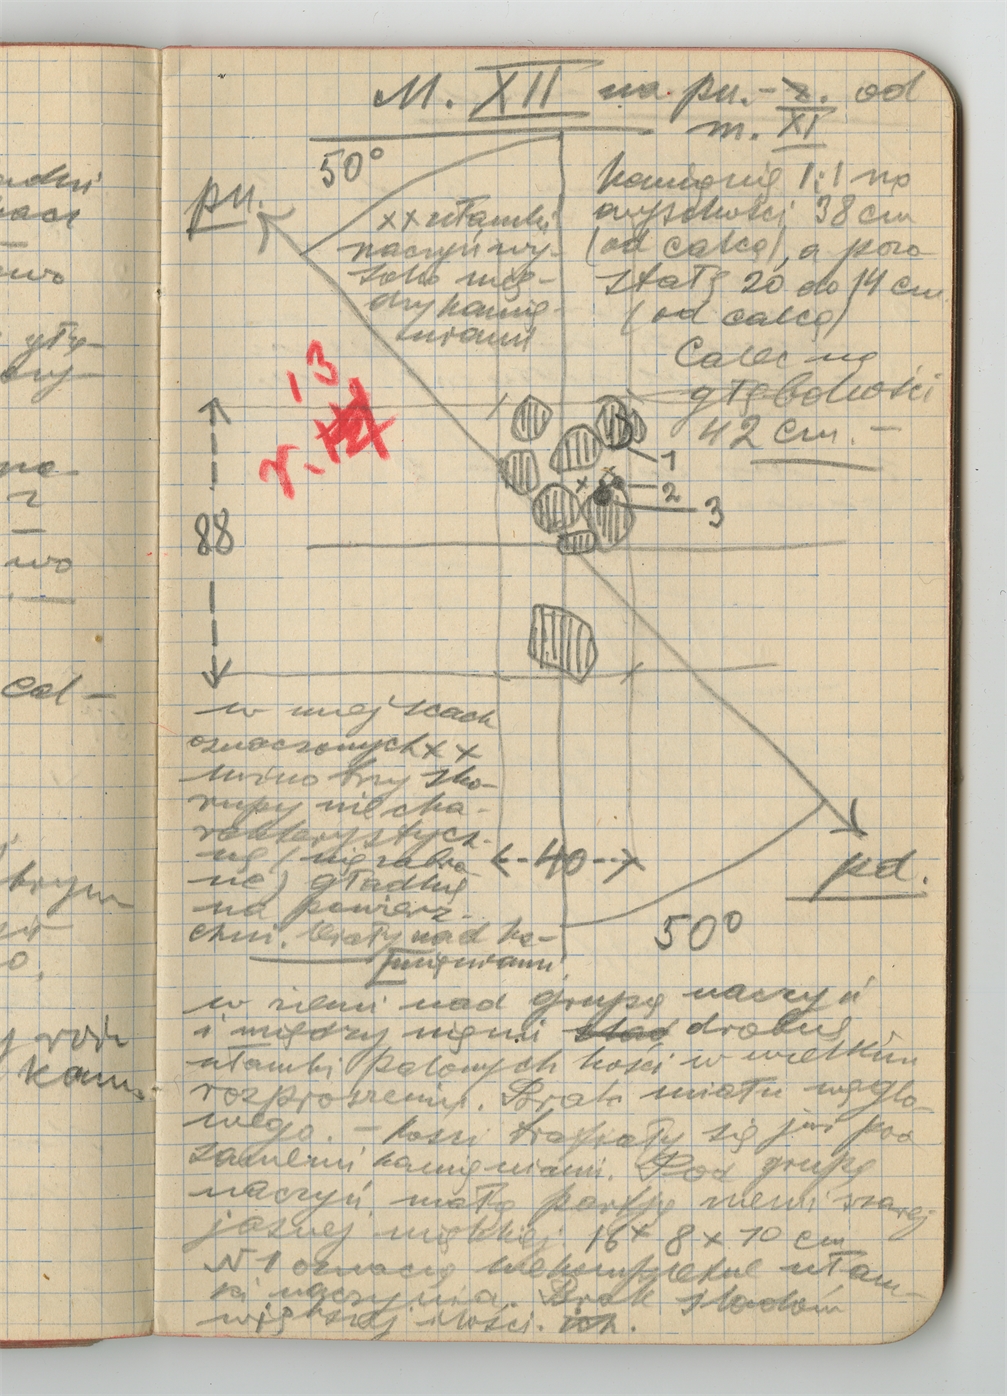 adni
wo
cal –
kam.
M. XII na pn.-z. od
m. XI
50°
pn.
xx ułamki
naczyń wy-
soko mię-
dzy kamie-
niami
kamienie 1:1 na
wysokości 38 cm
(od calca), a pozo-
stałe 20 do 14 cm
(od calca)
Calec na
głębokości
42 cm. –
r. 13.
1
2
3
88
w miejscach
oznaczonych x x
mimo trzy sko-
rupy niecha-
rakterystycz-
ne (nie zabra-
ne) gładkie
na powierz-
chni. leżały nad ka-
mieniami
40
pd.
50°
w ziemi nad grupą naczyń
i między niemi drobne
ułamki palonych kości w wielkim
rozproszeniu. Brak miału węglo-
wego. – kości trafiały się już pod
samemi kamieniami. Pod grupą
naczyń mała partja ziemi szarej
jasnej miękkiej 16 x 8 x 10 cm
N 1 oznacza niekompletne ułam-
ki naczynia. Brak śladów
większej ilości ich.